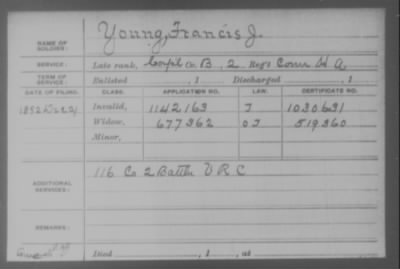 NAME OF SOLDIER: Young, Francis J.
SERVICE: Late rank, Corpl Co. B, 2 Reg't Conn H A
TERM OF SERVICE: Enlisted , 1 Discharged , 1
DATE OF FILING. CLASS. APPLICATION NO. LAW. CERTIFICATE NO.
1892 Dec 21 Invalid, 1142163 J 1030631
Widow, 677362 O J 519360
Minor,
ADDITIONAL SERVICES: 116 Co 2 Battln V R C
REMARKS:
Died , 1 , at